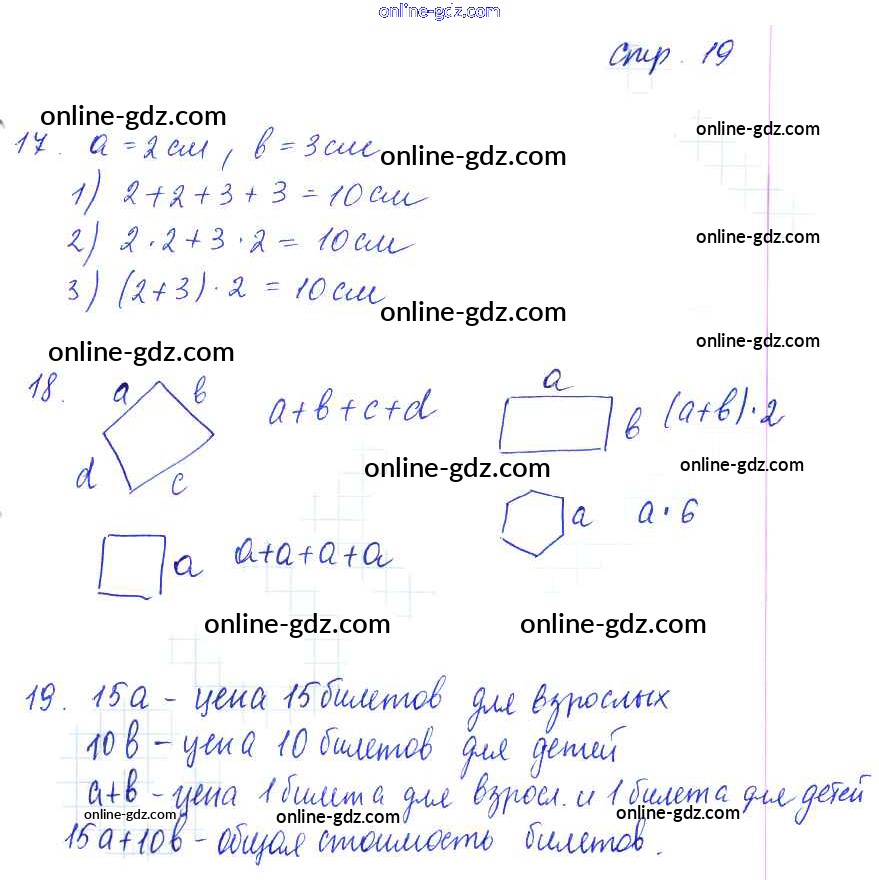 online-gdz.com
стр. 19
online-gdz.com
online-gdz.com
17. a = 2 см, в = 3 см
online-gdz.com
1) 2 + 2 + 3 + 3 = 10 см
2) 2 · 2 + 3 · 2 = 10 см
online-gdz.com
3) (2 + 3) · 2 = 10 см
online-gdz.com
online-gdz.com
online-gdz.com
18. a в a
a + в + c + d в (a + в) · 2
d c
online-gdz.com
online-gdz.com
a a · 6
a a + a + a + a
online-gdz.com
online-gdz.com
19. 15a - цена 15 билетов для взрослых
10в - цена 10 билетов для детей
a + в - цена 1 билета для взросл. и 1 билета для детей
online-gdz.com
online-gdz.com
online-gdz.com
15a + 10в - общая стоимость билетов.